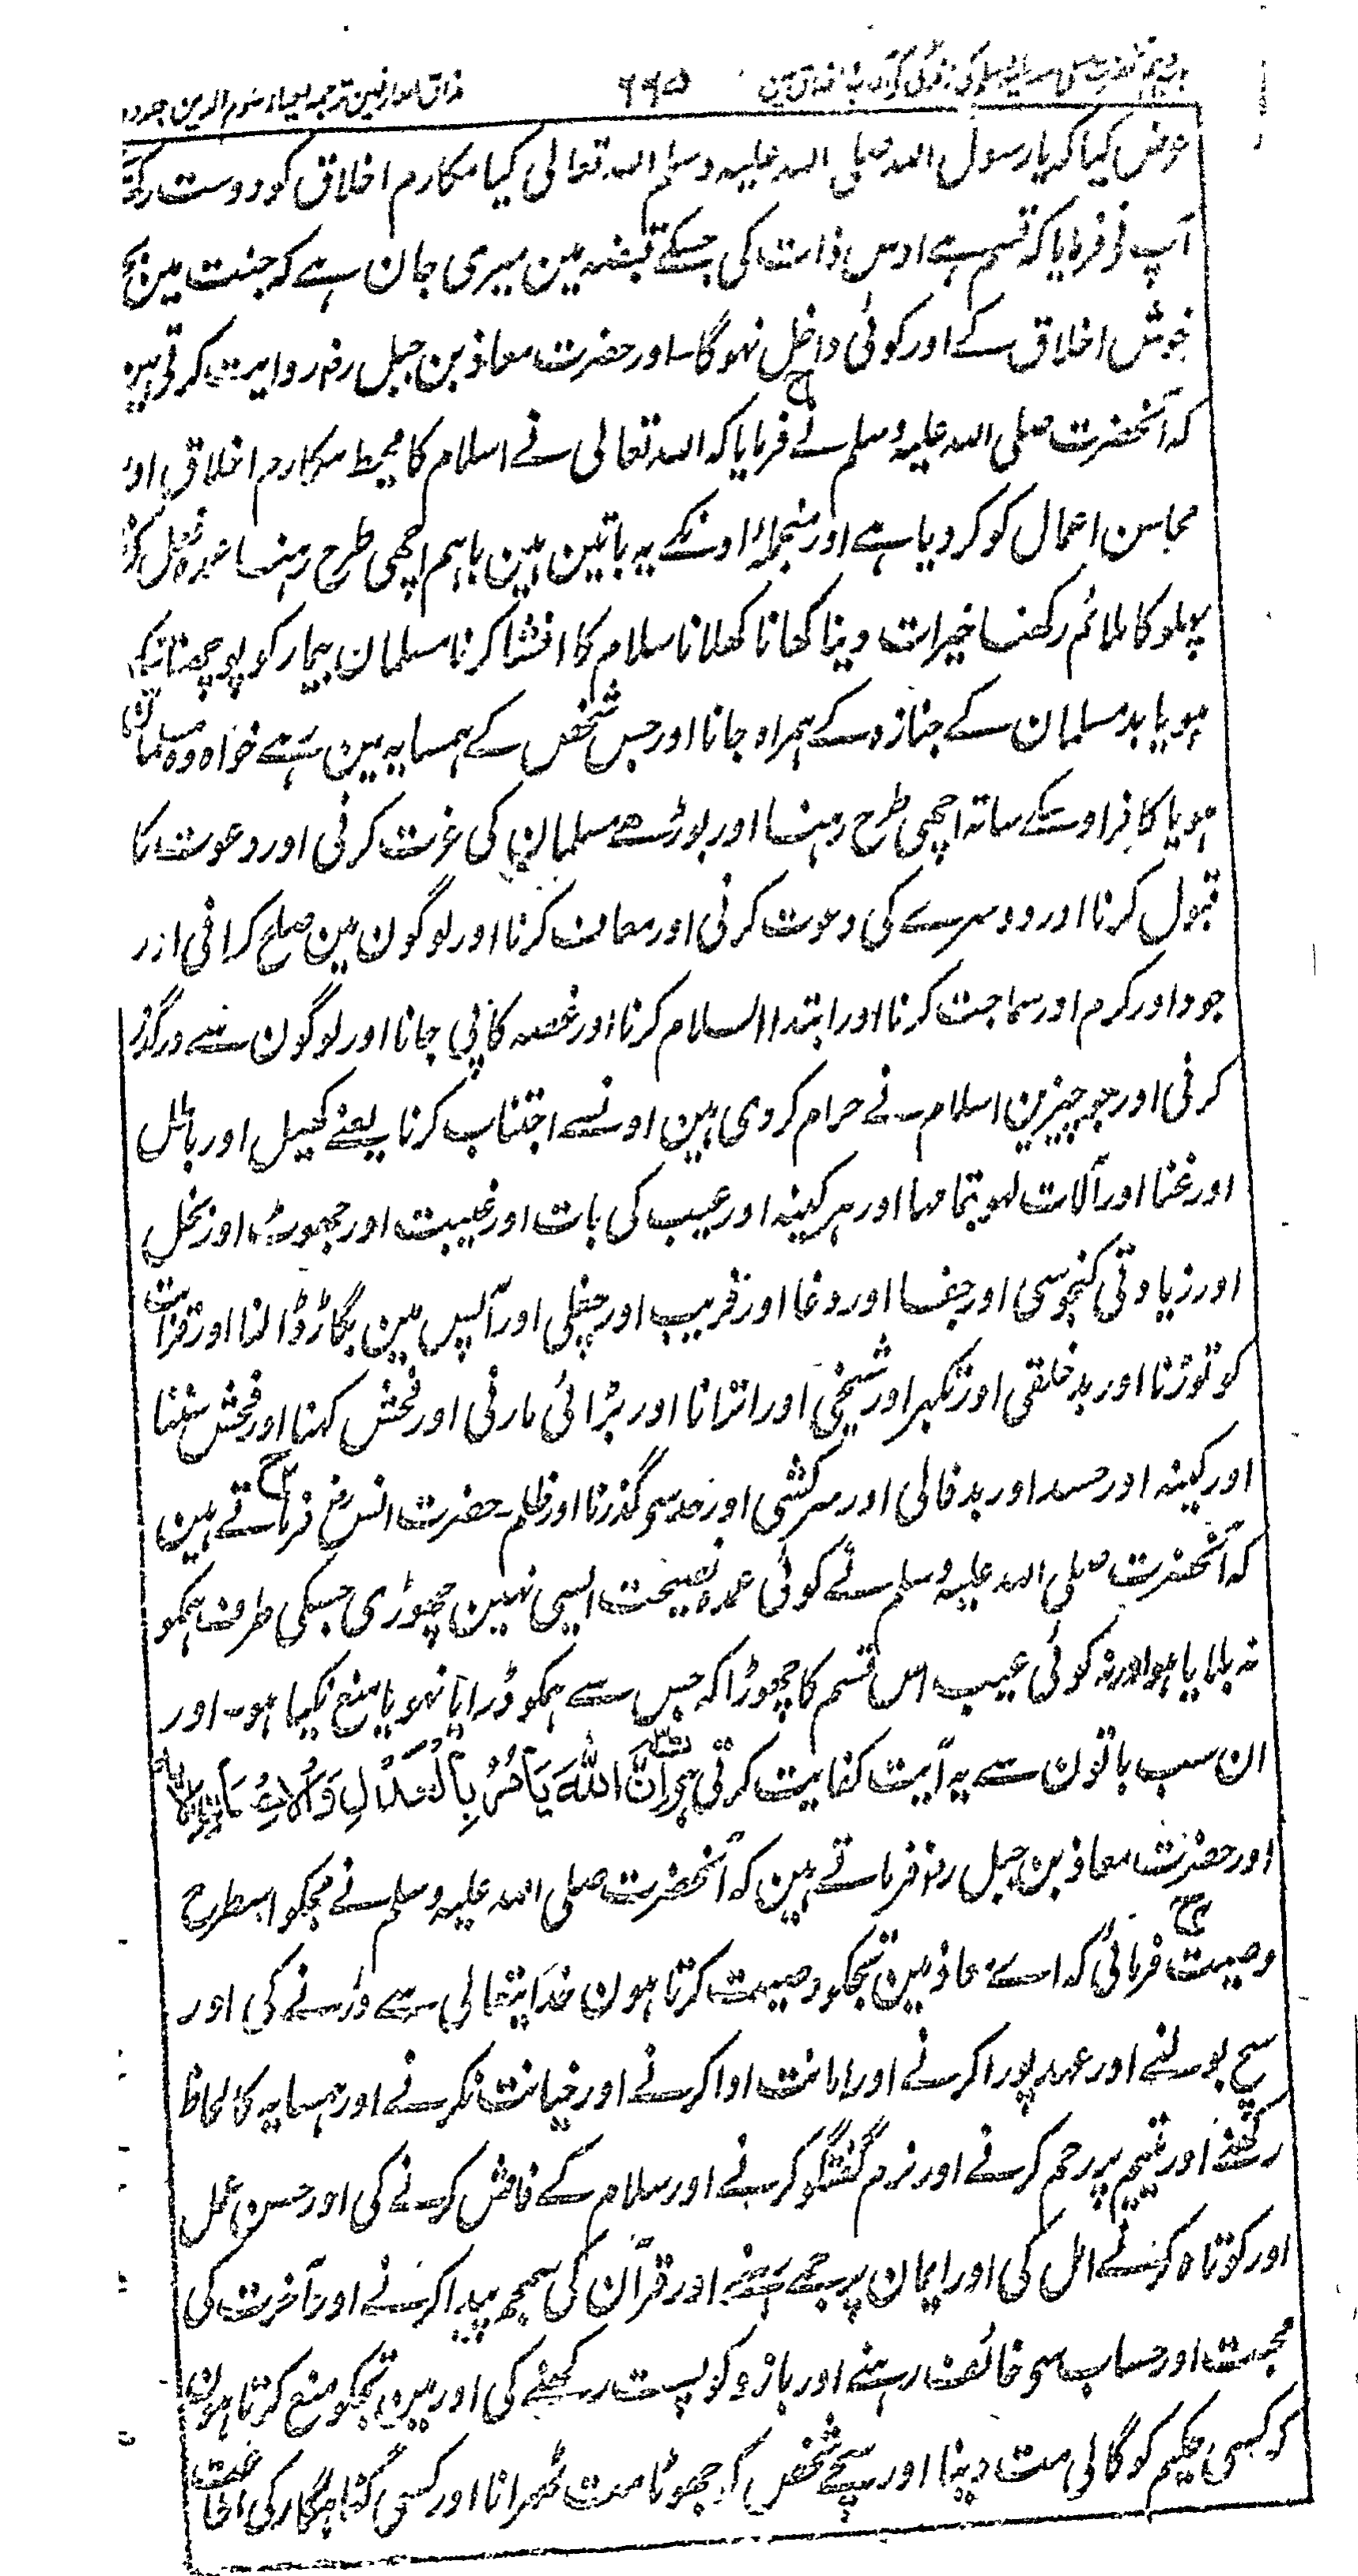 ۶۶۵ مذاق العارفین ترجمہ احیاء علوم الدین جلد دوم
عرض کیا کہ یا رسول اللہ صلی اللہ علیہ وسلم اللہ تعالی کیا مکارم اخلاق کو دوست رکھتا
آپ نے فرمایا کہ قسم ہے اوس ذات کی جسکے قبضہ مین میری جان ہے کہ جنت مین بجز
خوش اخلاق کے اور کوئی داخل نہوگا۔ اور حضرت معاذ بن جبل رضہ روایت کرتے ہین
کہ آنحضرت صلی اللہ علیہ وسلم نے فرمایا کہ اللہ تعالی نے اسلام کا محیط مکارم اخلاق اور
محاسن اعمال کو کر دیا ہے اور منجملہ اونکے یہ باتین ہین باہم اچھی طرح رہنا عمدہ فعل کرنا
پہلو کا ملائم رکھنا خیرات دینا کھانا کھلانا سلام کا افشا کرنا مسلمان بیمار کو پوچھنا نیک
ہو یا بد مسلمان کے جنازہ کے ہمراہ جانا اور جس شخص کے ہمسایہ مین رہے خواہ وہ مسلمان
ہو یا کافر اوسکے ساتہ اچھی طرح رہنا اور بوڑھے مسلمان کی عزت کرنی اور دعوت کا
قبول کرنا اور دوسرے کی دعوت کرنی اور معاف کرنا اور لوگون مین صلح کرانی اور
جود اور کرم اور سماجت کرنا اور ابتدا السلام کرنا اور غصہ کا پی جانا اور لوگون سے درگذر
کرنی اور جو چیزین اسلام نے حرام کر دی ہین اونسے اجتناب کرنا یعنے کھیل اور باطل
اور غنا اور آلات لہو تمامہا اور ہر کینہ اور عیب کی بات اور غیبت اور جھوٹ اور بخل
اور زیادتی کنجوسی اور جفا اور دغا اور فریب اور چغلی اور آپس مین بگاڑ ڈالنا اور قرابت
کو توڑنا اور بد خلقی اور تکبر اور شیخی اور اترانا اور بڑائی مارنی اور فحش کہنا اور فحش سننا
اور کینہ اور حسد اور بدفالی اور سرکشی اور حد سو گذرنا اور ظلم۔ حضرت انس رضہ فرماتے ہین
کہ آنحضرت صلی اللہ علیہ وسلم نے کوئی عمدہ نصیحت ایسی نہین چھوڑی جسکی طرف ہمکو
نہ بلایا ہو اور نہ کوئی عیب اس قسم کا چھوڑا کہ جس سے ہمکو ڈرایا نہو یا منع نکیا ہو۔ اور
ان سب باتون سے یہ آیت کفایت کرتی ہو اِنَّ اللّٰهَ یَأْمُرُ بِالْعَدْلِ وَالْاِحْسَانِ الآیہ
اور حضرت معاذ بن جبل رضہ فرماتے ہین کہ آنحضرت صلی اللہ علیہ وسلم نے مجکو اسطرح
وصیت فرمائی کہ اے معاذ مین تجکو وصیت کرتا ہون خدا یتعالی سے ڈرنے کی اور
سچ بولنے اور عہد پورا کرنے اور امانت ادا کرنے اور خیانت نکرنے اور ہمسایہ کا لحاظ
رکھنے اور یتیم پر رحم کرنے اور نرم گفتگو کرنے اور سلام کے فاش کرنے کی اور حسن عمل
اور کوتاہ کرنے امل کی اور ایمان پر جمے رہنے اور قرآن کی سمجھ پیدا کرنے اور آخرت کی
محبت اور حساب سو خائف رہنے اور بازو کو پست رکھنے کی اور مین تجکو منع کرتا ہون
کہ کسی حکیم کو گالی مت دینا اور سچے شخص کو جھوٹا مت ٹھہرانا اور کسی گناہگار کی اطاعت